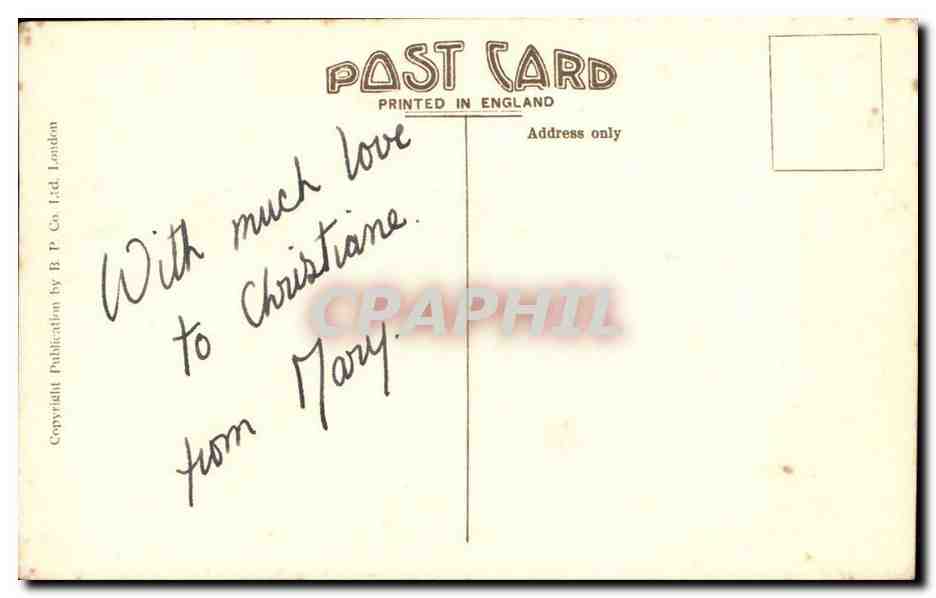 POST CARD
PRINTED IN ENGLAND
Address only
Copyright Publication by B. P. Co. Ltd. London
With much love
to Christiane.
from Mary.
CPAPHIL